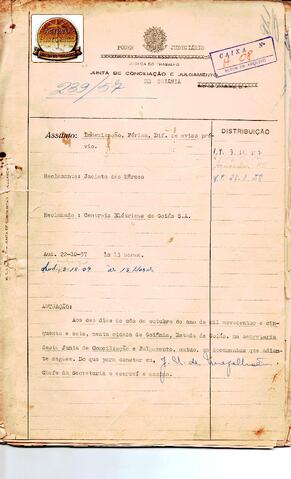 PODER JUDICIÁRIO
JUSTIÇA DO TRABALHO
JUNTA DE CONCILIAÇÃO E JULGAMENTO
DE GOIÂNIA
CAIXA
H 08
289/57
Assunto: Indenização, Férias, Dif. de aviso pré-
vio.
DISTRIBUIÇÃO
Reclamante: Jacinto das
Reclamado : Centrais Elétricas de Goiás S.A.
Aud. 22-10-57 às 13 horas.
AUTUAÇÃO:
Aos dez dias do mês de outubro do ano de mil novecentos e cin-
quenta e sete, nesta cidade de Goiânia, Estado de Goiás, na secretaria
desta Junta de Conciliação e Julgamento, autuo, os documentos que adian-
te seguem. Do que para constar eu, J. U. de Magalhães
Chefe da Secretaria o escrevi e assino.